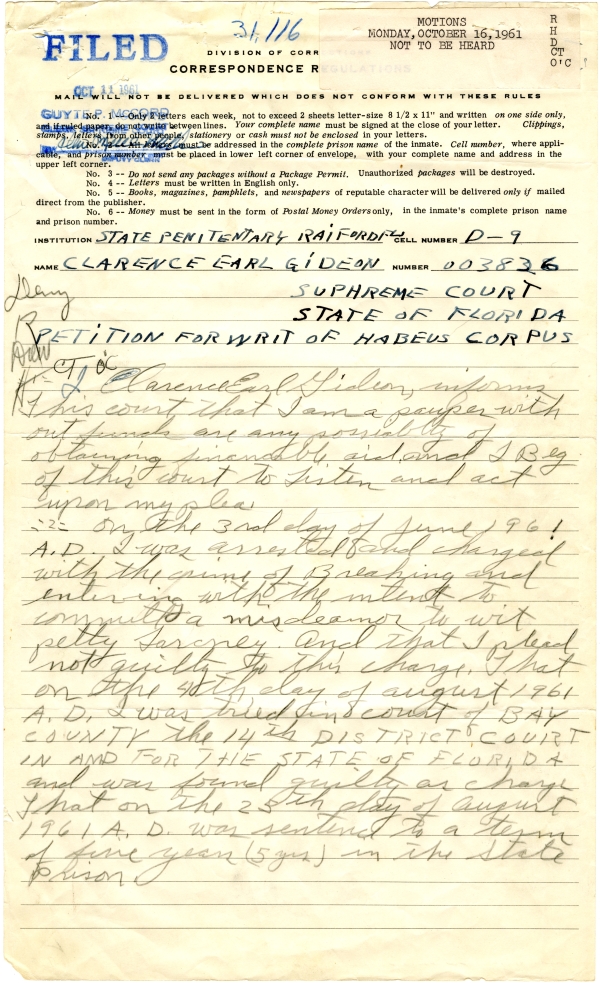 31,116
FILED
OCT 11 1961
GUYTE P. McCORD
MOTIONS
MONDAY, OCTOBER 16, 1961
NOT TO BE HEARD
R
H
D
CT
O'C
DIVISION OF CORR
CORRESPONDENCE REGULATIONS
MAIL WILL NOT BE DELIVERED WHICH DOES NOT CONFORM WITH THESE RULES
No. 1 -- Only 2 letters each week, not to exceed 2 sheets letter-size 8 1/2 x 11" and written on one side only,
and if ruled paper, do not write between lines. Your complete name must be signed at the close of your letter. Clippings,
stamps, letters from other people, stationery or cash must not be enclosed in your letters.
No. must be addressed in the complete prison name of the inmate. Cell number, where appli-
cable, and prison number must be placed in lower left corner of envelope, with your complete name and address in the
upper left corner.
No. 3 -- Do not send any packages without a Package Permit. Unauthorized packages will be destroyed.
No. 4 -- Letters must be written in English only.
No. 5 -- Books, magazines, pamphlets, and newspapers of reputable character will be delivered only if mailed
direct from the publisher.
No. 6 -- Money must be sent in the form of Postal Money Orders only, in the inmate's complete prison name
and prison number.
INSTITUTION STATE PENITENTARY RAIFORD FL CELL NUMBER D-9
NAME CLARENCE EARL GIDEON NUMBER 003826
SUPHREME COURT
STATE OF FLORIDA
Deny
R
PETITION FOR WRIT OF HABEUS CORPUS
CT O'C
I Clarence Earl Gideon, informs
This court that I am a pauper with
out funds are any possiablty of
obtaining financable aid, and I Beg
of this court to Listen and act
upon my plea
-2- On the 3rd day of June 1961
A.D. I was arrested and charged
with the crime of Breaking and
entering with the intent to
committ a misdeamor to wit
petty Larcney. And that I plead
not guilty to this charge. That
on the 4th day of august 1961
A.D. I was tried in court of BAY
COUNTY the 14th DISTRICT COURT
IN AND FOR THE STATE OF FLORIDA
and was found guilty as charge
That on the 25th day of august
1961 A.D. was sentence to a term
of five year (5 yrs) in the State
Prison